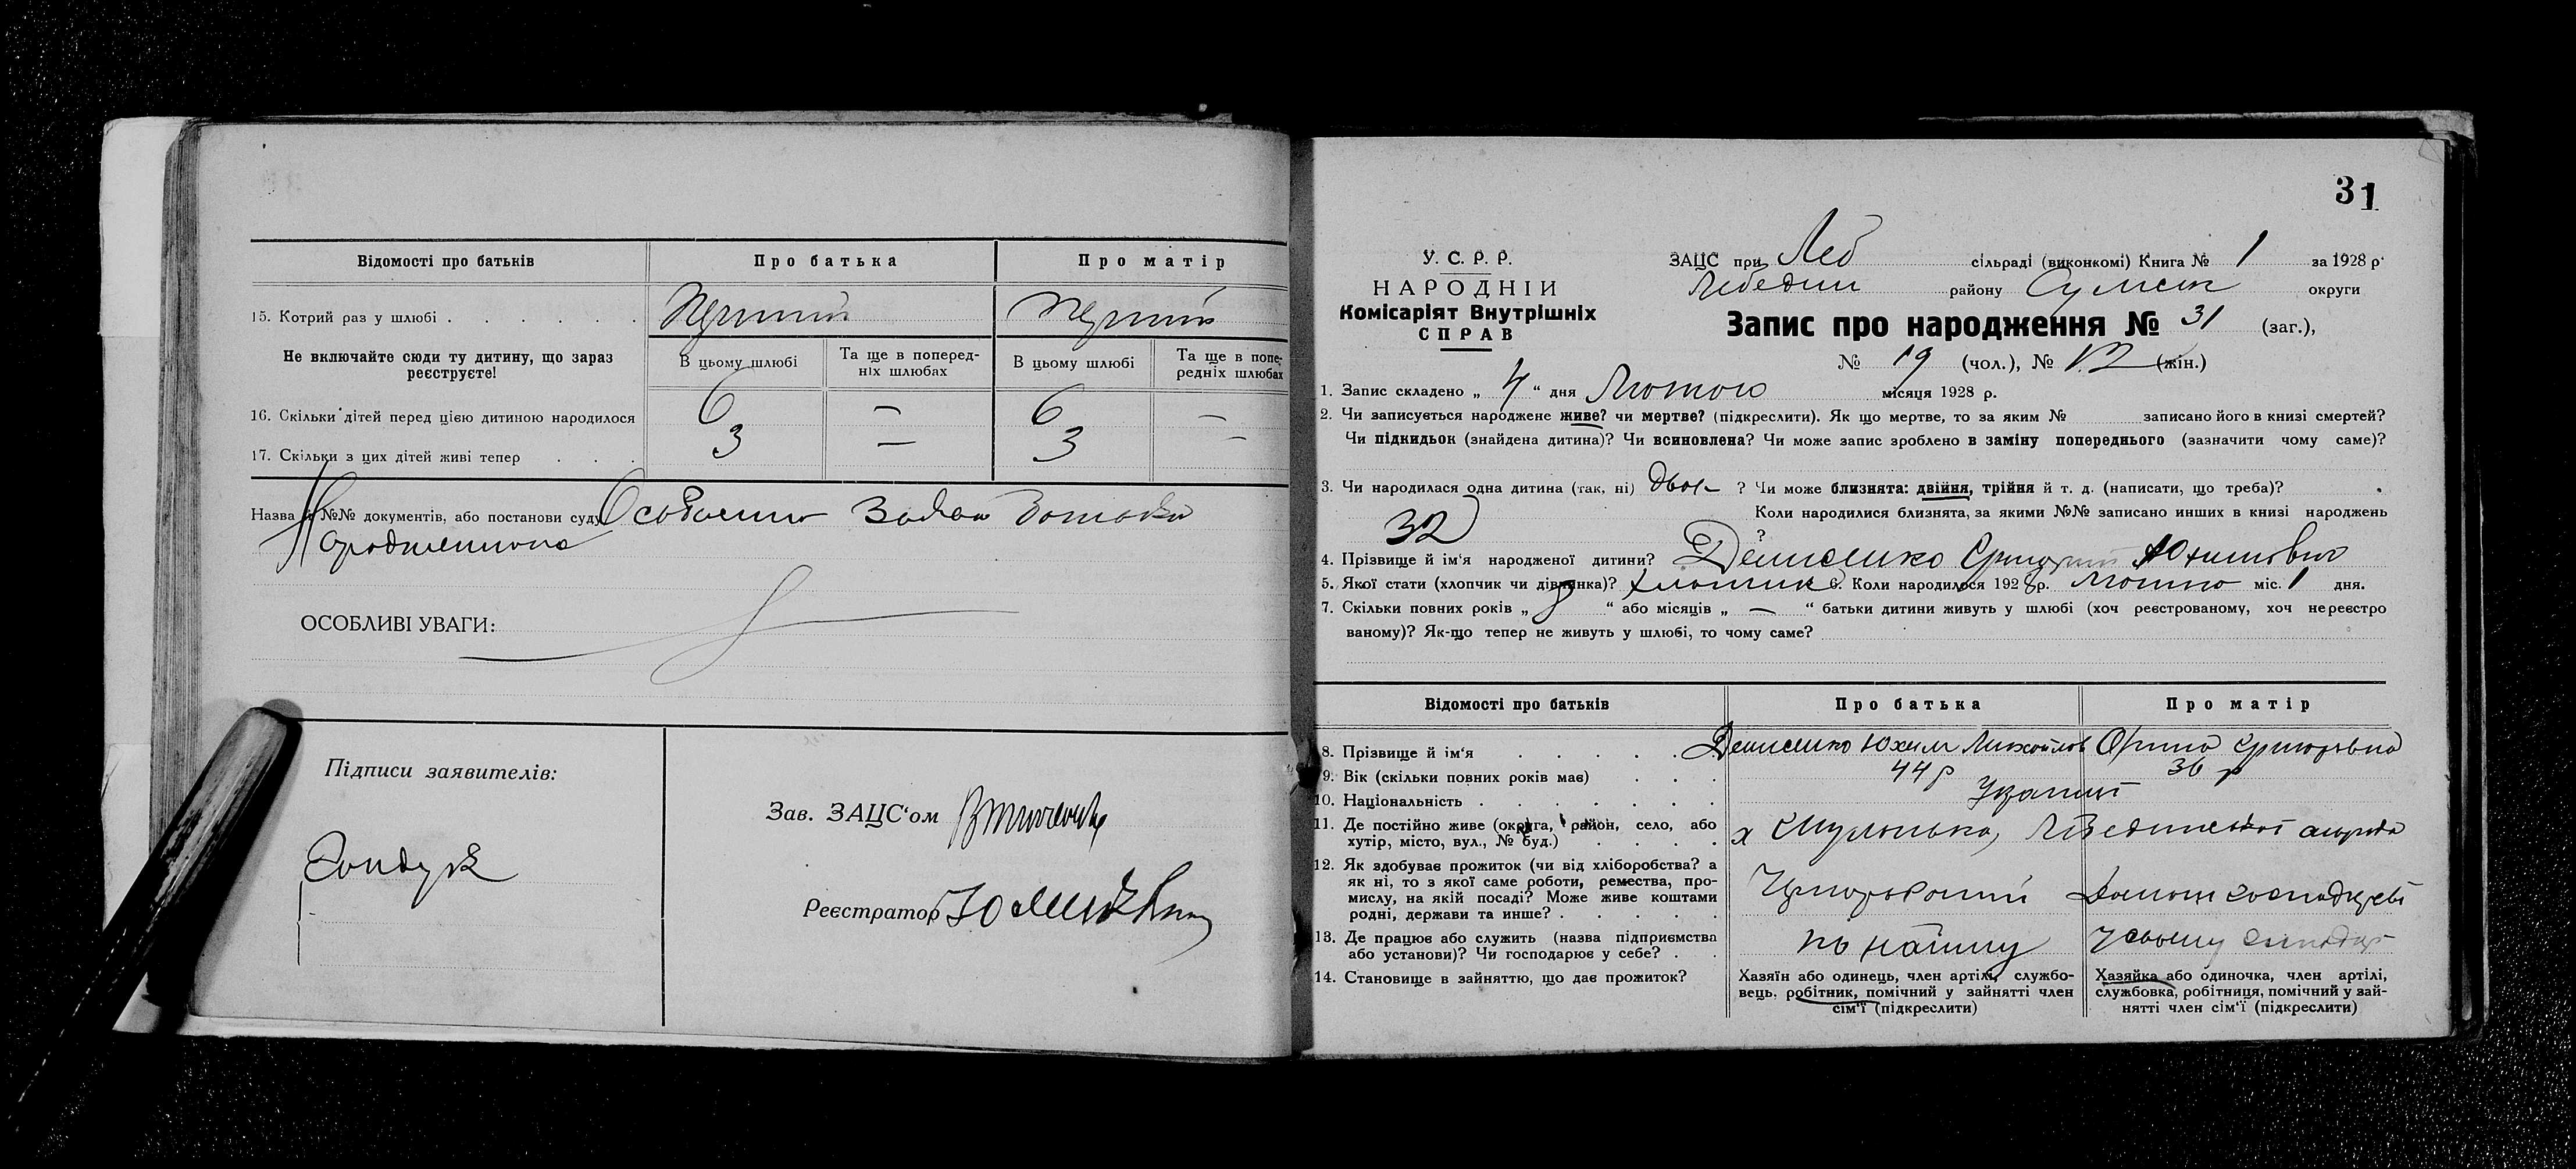 Відомості про батьків
Про батька
Про матір
15. Котрий раз у шлюбі . . . . . . .
Перший
Перший
Не включайте сюди ту дитину, що зараз реєструєте!
В цьому шлюбі
Та ще в попередніх шлюбах
В цьому шлюбі
Та ще в попередніх шлюбах
16. Скільки дітей перед цією дитиною народилося
6 — 6 —
17. Скільки з цих дітей живі тепер . . .
3 — 3 —
Назва й №№ документів, або постанови суду
ОСОБЛИВІ УВАГИ:
Підписи заявителів:
Зав. ЗАЦС'ом
Реєстратор
31
У. С. Р. Р.
НАРОДНІЙ
Комісаріят Внутрішніх
СПРАВ
ЗАЦС при Леб сільраді (виконкомі) Книга № 1 за 1928 р.
Лебедин району Сумськ округи
Запис про народження № 31 (заг.),
№ 19 (чол.), № 12 (жін.)
1. Запис складено „ 4 “ дня Лютого місяця 1928 р.
2. Чи записується народжене живе? чи мертве? (підкреслити). Як що мертве, то за яким № записано його в книзі смертей?
Чи підкидьок (знайдена дитина)? Чи всиновлена? Чи може запис зроблено в заміну попереднього (зазначити чому саме)?
3. Чи народилася одна дитина (так, ні) двох ? Чи може близнята: двійня, трійня й т. д. (написати, що треба)?
Коли народилися близнята, за якими №№ записано инших в книзі народжень
32 ?
4. Прізвище й ім‘я народженої дитини? Денисенко Григорий Юхимович
5. Якої стати (хлопчик чи дівчинка)? хлопчик 6. Коли народилося 1928 р. Лютого міс. 1 дня.
7. Скільки повних років „ “ або місяців „ — “ батьки дитини живуть у шлюбі (хоч реєстрованому, хоч нереєстро
ваному)? Як-що тепер не живуть у шлюбі, то чому саме?
Відомості про батьків
Про батька
Про матір
8. Прізвище й ім‘я . . . . . .
Денисенко Юхим Михайлов
Орина Григоровна
9. Вік (скільки повних років має) . . .
44 р
36 р
10. Національність . . . . . . . .
Украинці
11. Де постійно живе (округа, район, село, або
хутір, місто, вул., № буд.) . . . .
х Лебединської
12. Як здобуває прожиток (чи від хліборобства? а
як ні, то з якої саме роботи, ремества, про-
мислу, на якій посаді? Може живе коштами
родні, держави та инше? . . . . .
Чорноробочий
13. Де працює або служить (назва підприємства
або установи)? Чи господарює у себе? . .
по найму
У своему господар
14. Становище в зайняттю, що дає прожиток?
Хазяїн або одинець, член артілі, службо-
вець, робітник, помічний у зайнятті член
сім‘ї (підкреслити)
Хазяйка або одиночка, член артілі,
службовка, робітниця, помічний у зай-
нятті член сім‘ї (підкреслити)